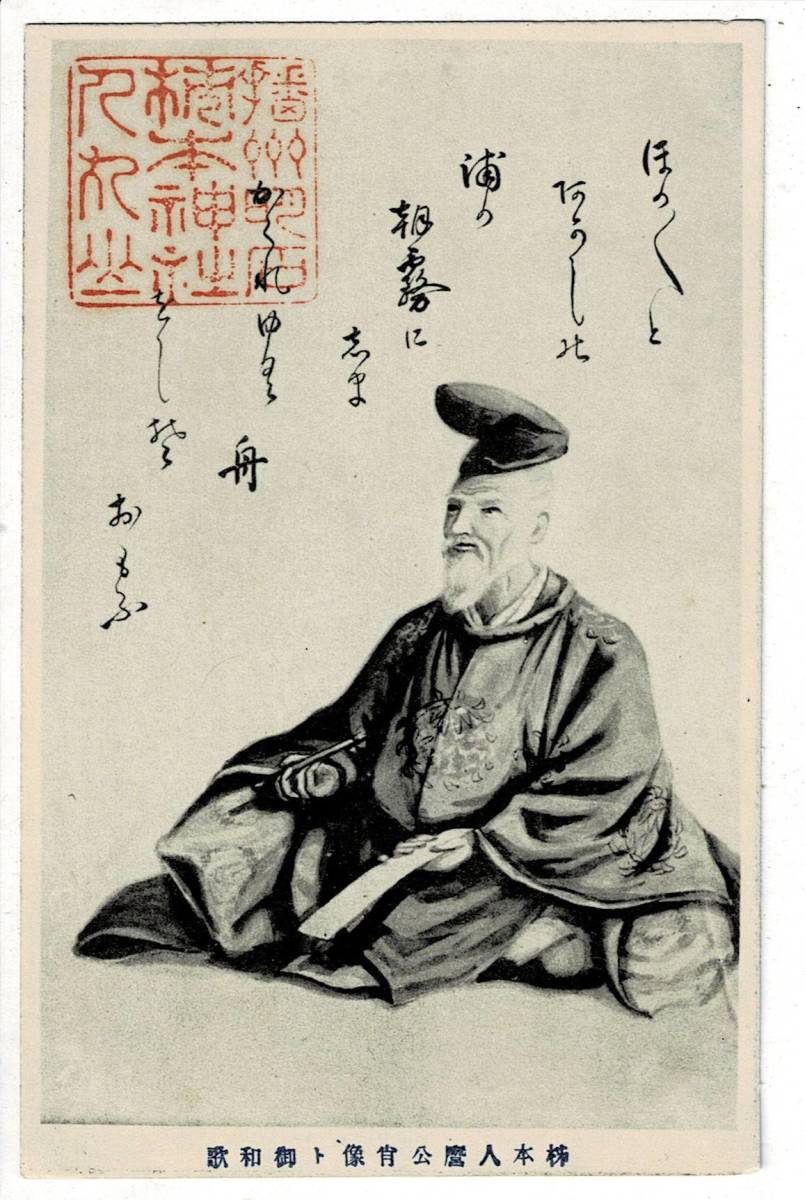 ほの〱と
あかしの
浦の
朝霧に
志ま
かくれゆく
舟
をしそ
おもふ
播州明石
柿本神社
人丸山
柿本人麿公肖像ト御和歌